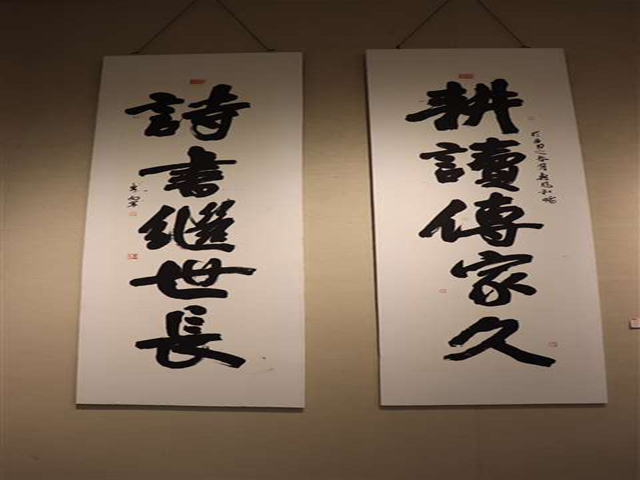 耕讀傳家久
詩書繼世長